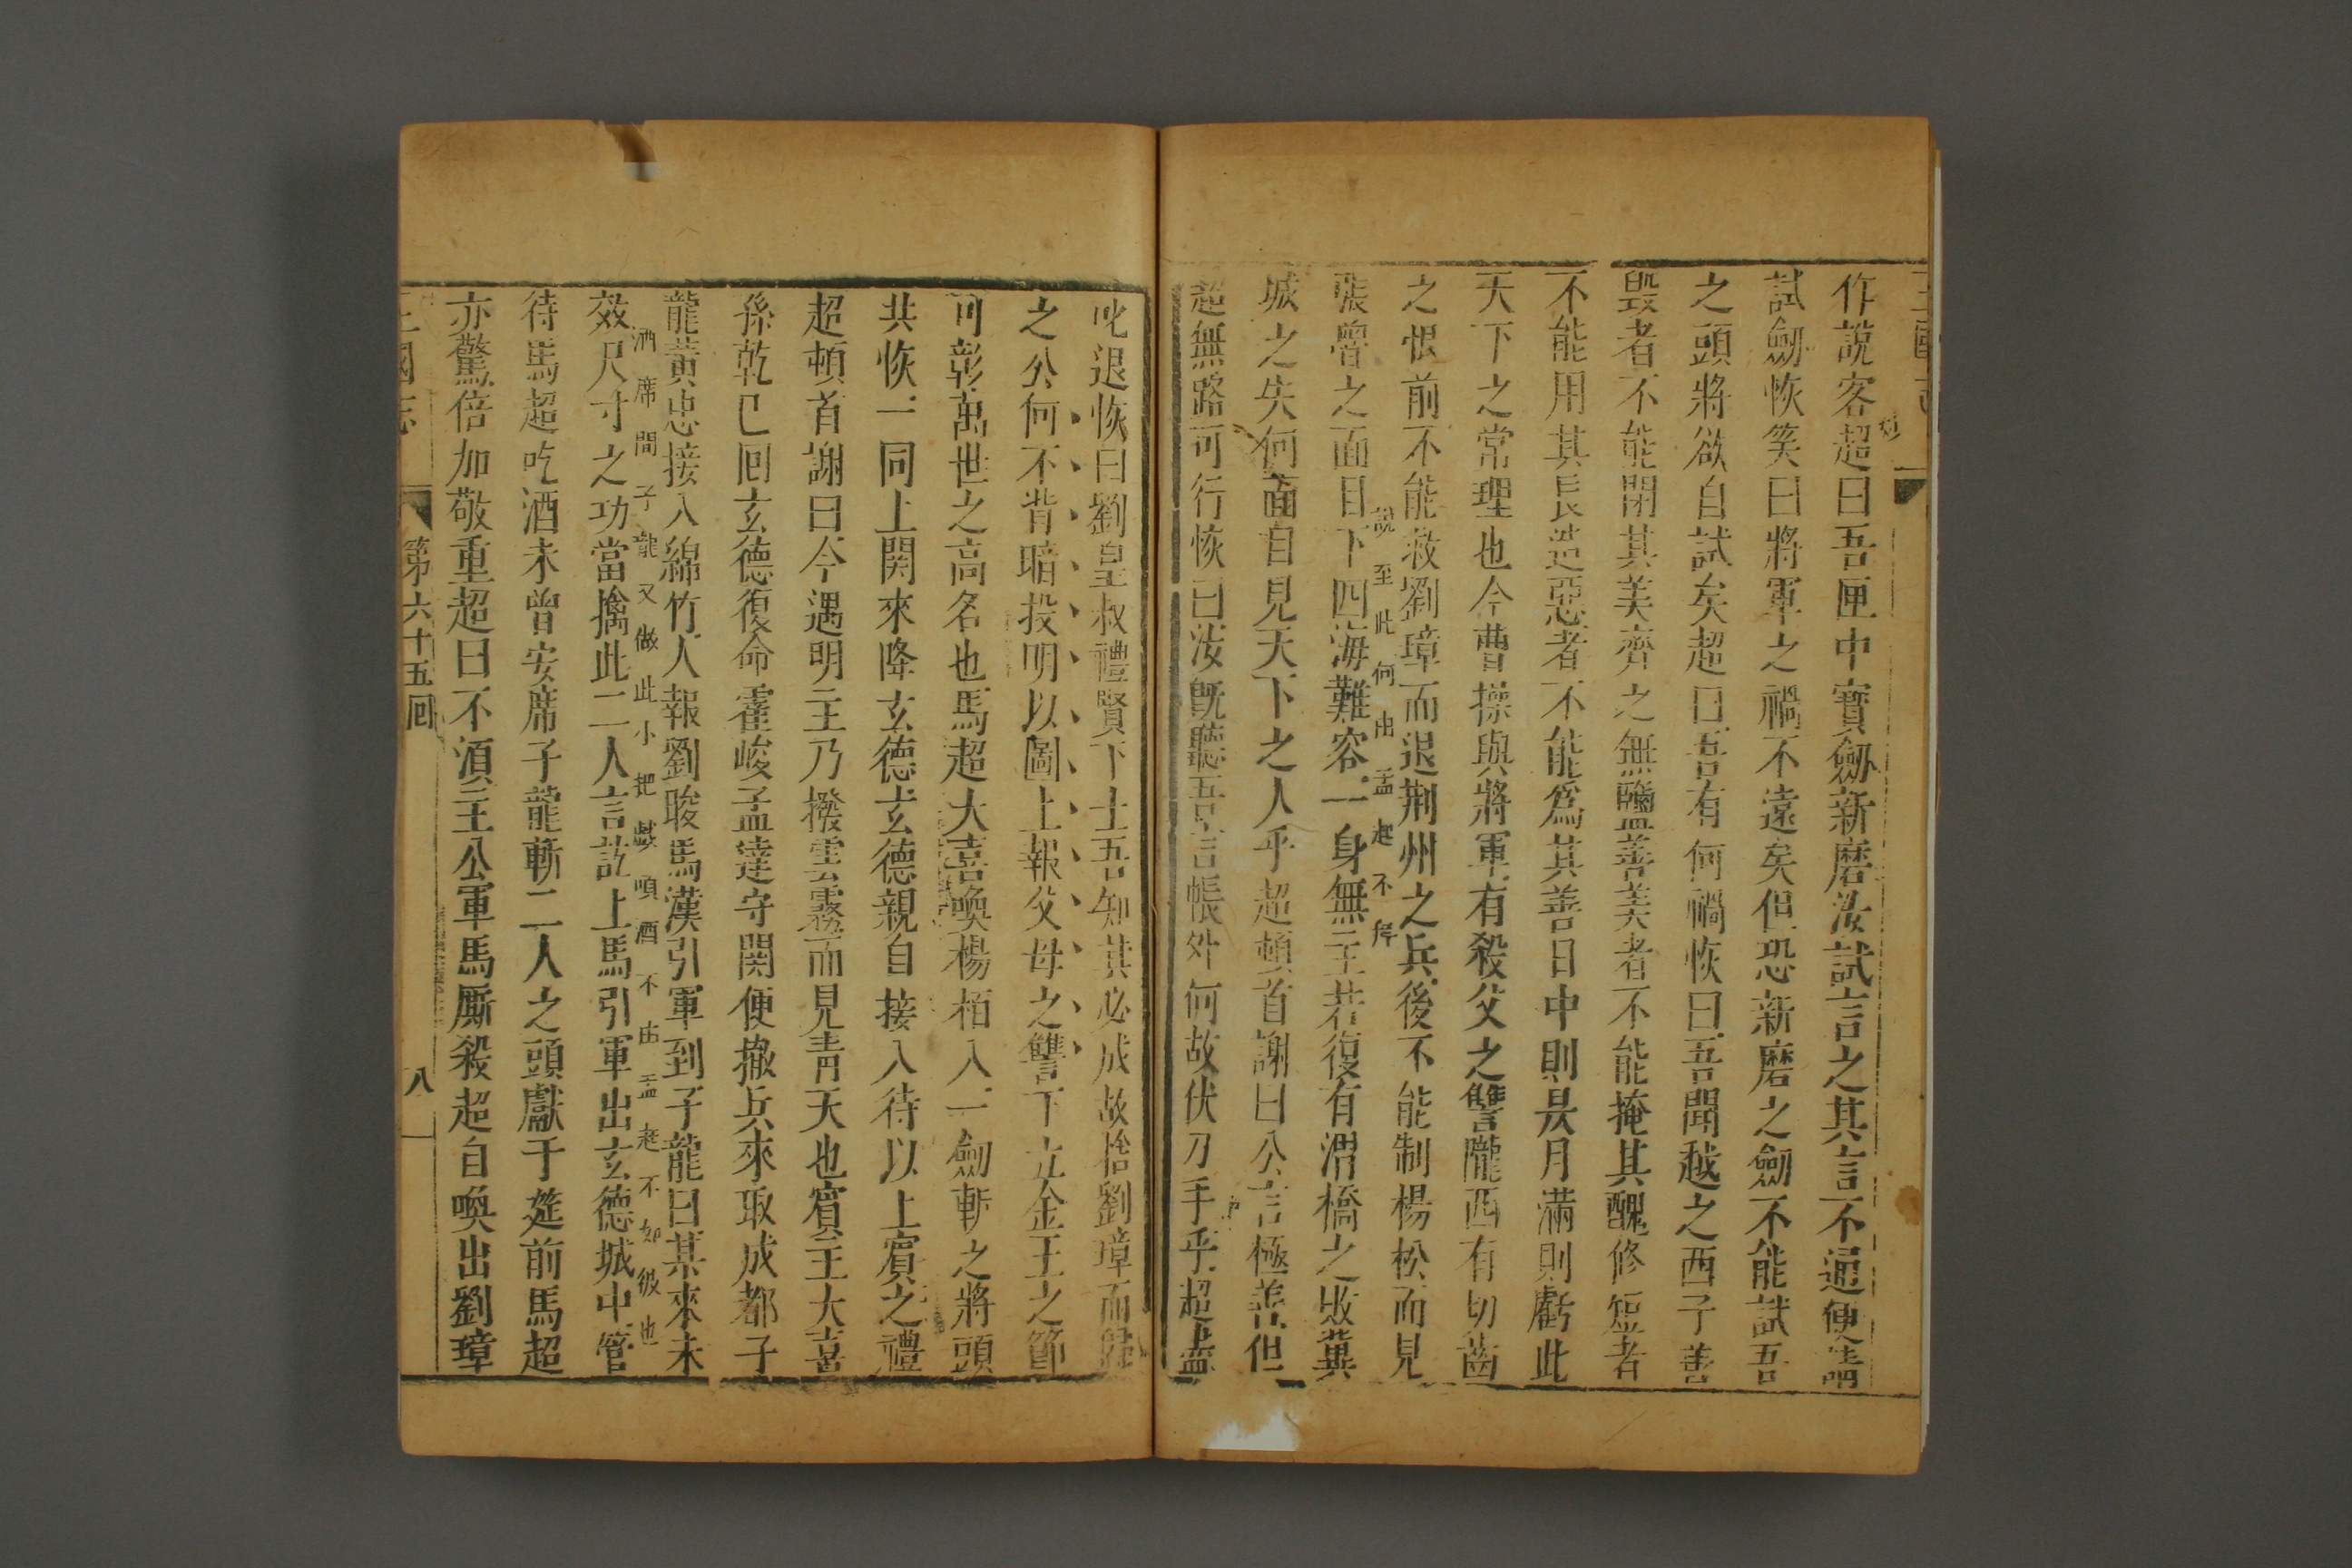 作說客超曰吾匣中寶劔新磨汝試言之其言不通便請
試劔恢笑曰將軍之禍不遠矣但恐新磨之劔不能試吾
之頭將欲自試矣超曰吾有何禍恢曰吾聞越之西子善
毀者不能閉其美齊之無鹽善美者不能掩其醜修短者
不能用其長造惡者不能爲其善日中則昃月滿則虧此
天下之常理也今曹操與將軍有殺父之讐隴西有切齒
之恨前不能救劉璋而退荆州之兵後不能制楊松而見
說至此何由孟起不降
張魯之面目下四海難容一身無主若復有渭橋之敗冀
城之失何面自見天下之人乎超頓首謝曰公言極善但
超無路可行恢曰汝旣聽吾言帳外何故伏刀手乎超盡
叱退恢曰劉皇叔禮賢下士吾知其必成故捨劉璋而歸
之公何不背暗投明以圖上報父母之讐下立金玉之節
可彰萬世之高名也馬超大喜喚楊栢入一劍斬之將頭
共恢一同上関來降玄德玄德親自接入待以上賓之禮
超頓首謝曰今遇明主乃撥雲霧而見青天也賓主大喜
孫乾已囬玄德復命霍峻孟達守関便撤兵來取成都子
龍黄忠接入綿竹人報劉晙馬漢引軍到子龍曰某來未
酒席間子龍又做此小把戲頃酒不由孟起不如彼也
效尺寸之功當擒此二人言訖上馬引軍出玄德城中管
待馬超吃酒未曾安席子龍斬二人之頭獻于筵前馬超
亦驚倍加敬重超曰不須主公軍馬厮殺超自喚出劉璋
三國志 第六十五囘 八